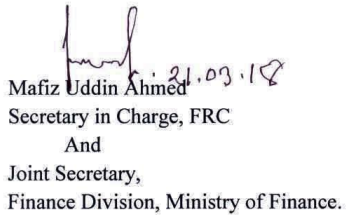 21.03.18
Mafiz Uddin Ahmed
Secretary in Charge, FRC
And
Joint Secretary,
Finance Division, Ministry of Finance.